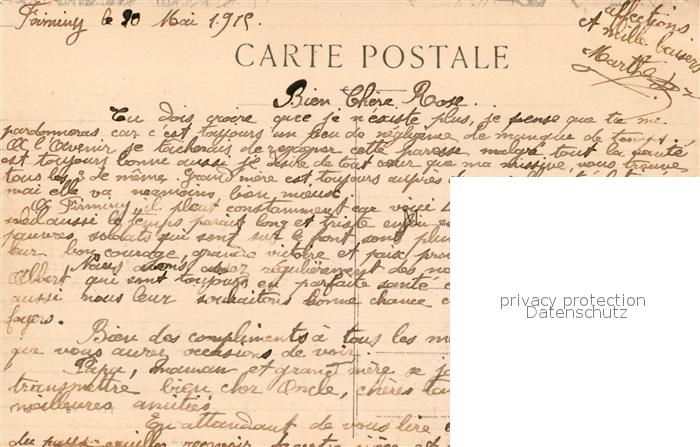 Firminy le 20 Mai 1915.
affections
et mille baisers
Marthe
CARTE POSTALE
Bien Chère Rose.
Tu dois croire que je n'existe plus, je pense que tu me
pardonneras car c'est toujours un peu de négligence de manque de temps.
A l'Avenir je tacherais de regagner cette paresse malgré tout la santé
est toujours bonne aussi je désire de tout cœur que ma missive, vous trouve
tous les de même. Grand'mère est toujours auprès
mai elle va neamoins bien mieux
A Firminy, il pleut constamment car voici
aussi le temps parait long et triste enfin
pauvres soldats qui sont sur le front, sont plus
leur bon courage, grande victoire et paix
Nous avons assez régulièrement des no
Albert qui sont toujours en parfaite santé
aussi nous leur souhaitons bonne chance e
foyers.
Bien des compliments à tous les m
que vous aurez occasions de voir
Papa, maman et grand'mère se jo
transmettre bien cher Oncle, chères tan
meilleures amitiés
En attendant de vous lire
du recevoir
privacy protection
Datenschutz